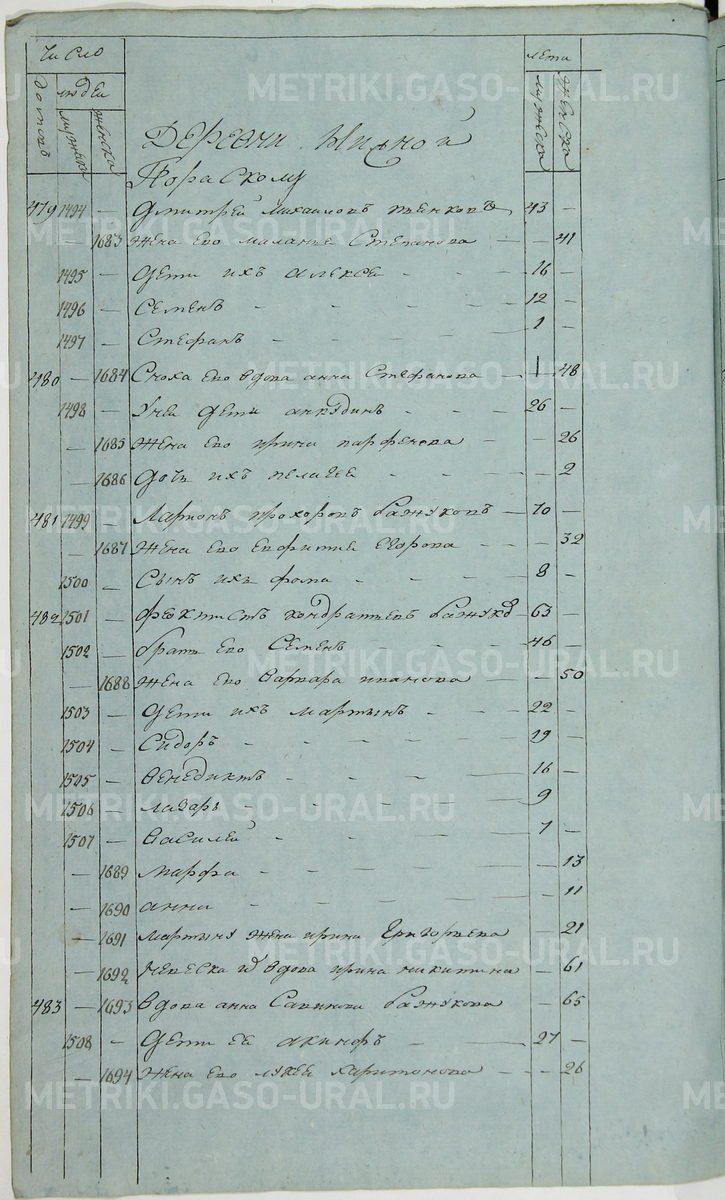 Число
лета
домовъ
людей
мужска
женска
мужска
женска
Деревни Нижной
479 1494 — Дмитрей Михаиловъ 43 —
— 1683 жена его маланья Степанова — 41
1495 — дети ихъ алексей 16 —
1496 — Семенъ 12 —
1497 — Стефанъ 1 —
480 — 1684 Сноха его вдова анна Стефанова 48
1498 — Унеи дети анкудинъ 26 —
— 1685 жена его ирина парфенова — 26
— 1686 дочь ихъ пелагея — 2
481 1499 — Ларионъ прохоровъ бажуковъ
— 1687 жена его Егорова — 32
1500 — Сынъ ихъ фома 8 —
482 1501 — феоктистъ кондратьевъ 63 —
1502 — братъ его Семенъ 46
— 1688 жена его Варвара иванова — 50
1503 — дети ихъ мартынъ 22 —
1504 — Сидоръ 19 —
1505 — Венедиктъ 16 —
1506 — лазарь 9
1507 — Василей 7 —
— 1689 марфа — 13
— 1690 анна — 11
— 1691 мартыну жена ирина Григорьева — 21
— 1692 вдова ирина никитина — 61
483 — 1693 вдова анна Савинова бажукова — 65
1508 — дети ей акинфъ 27 —
— 1694 жена его Харитонова — 26
METRIKI.GASO-URAL.RU